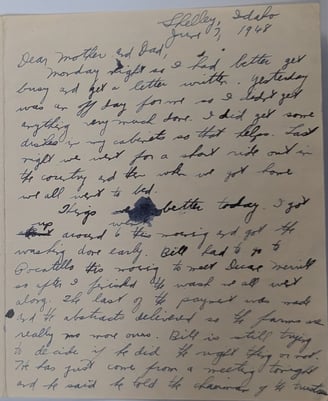 Shelley, Idaho
June 7, 1948
Dear Mother and Dad,
Monday night so I had better get
busy and get a letter written. Yesterday
was an off day for me so I didn't get
anything very much done. I did get some
dishes in my cabinets so that helps. Last
night we went for a short ride out in
the country and then when we got home
we all went to bed.
Things are better today. I got
up around to this morning and got the
washing done early. Bill had to go to
Pocatello this morning to meet Merrill
so after I finished the wash we all went
along. The last of the payment was made
and the abstracts delivered so the farms are
really no more ours. Bill is still trying
to decide if he did the right thing or not.
He has just come from a meeting tonight
and he said he told the chairman of the